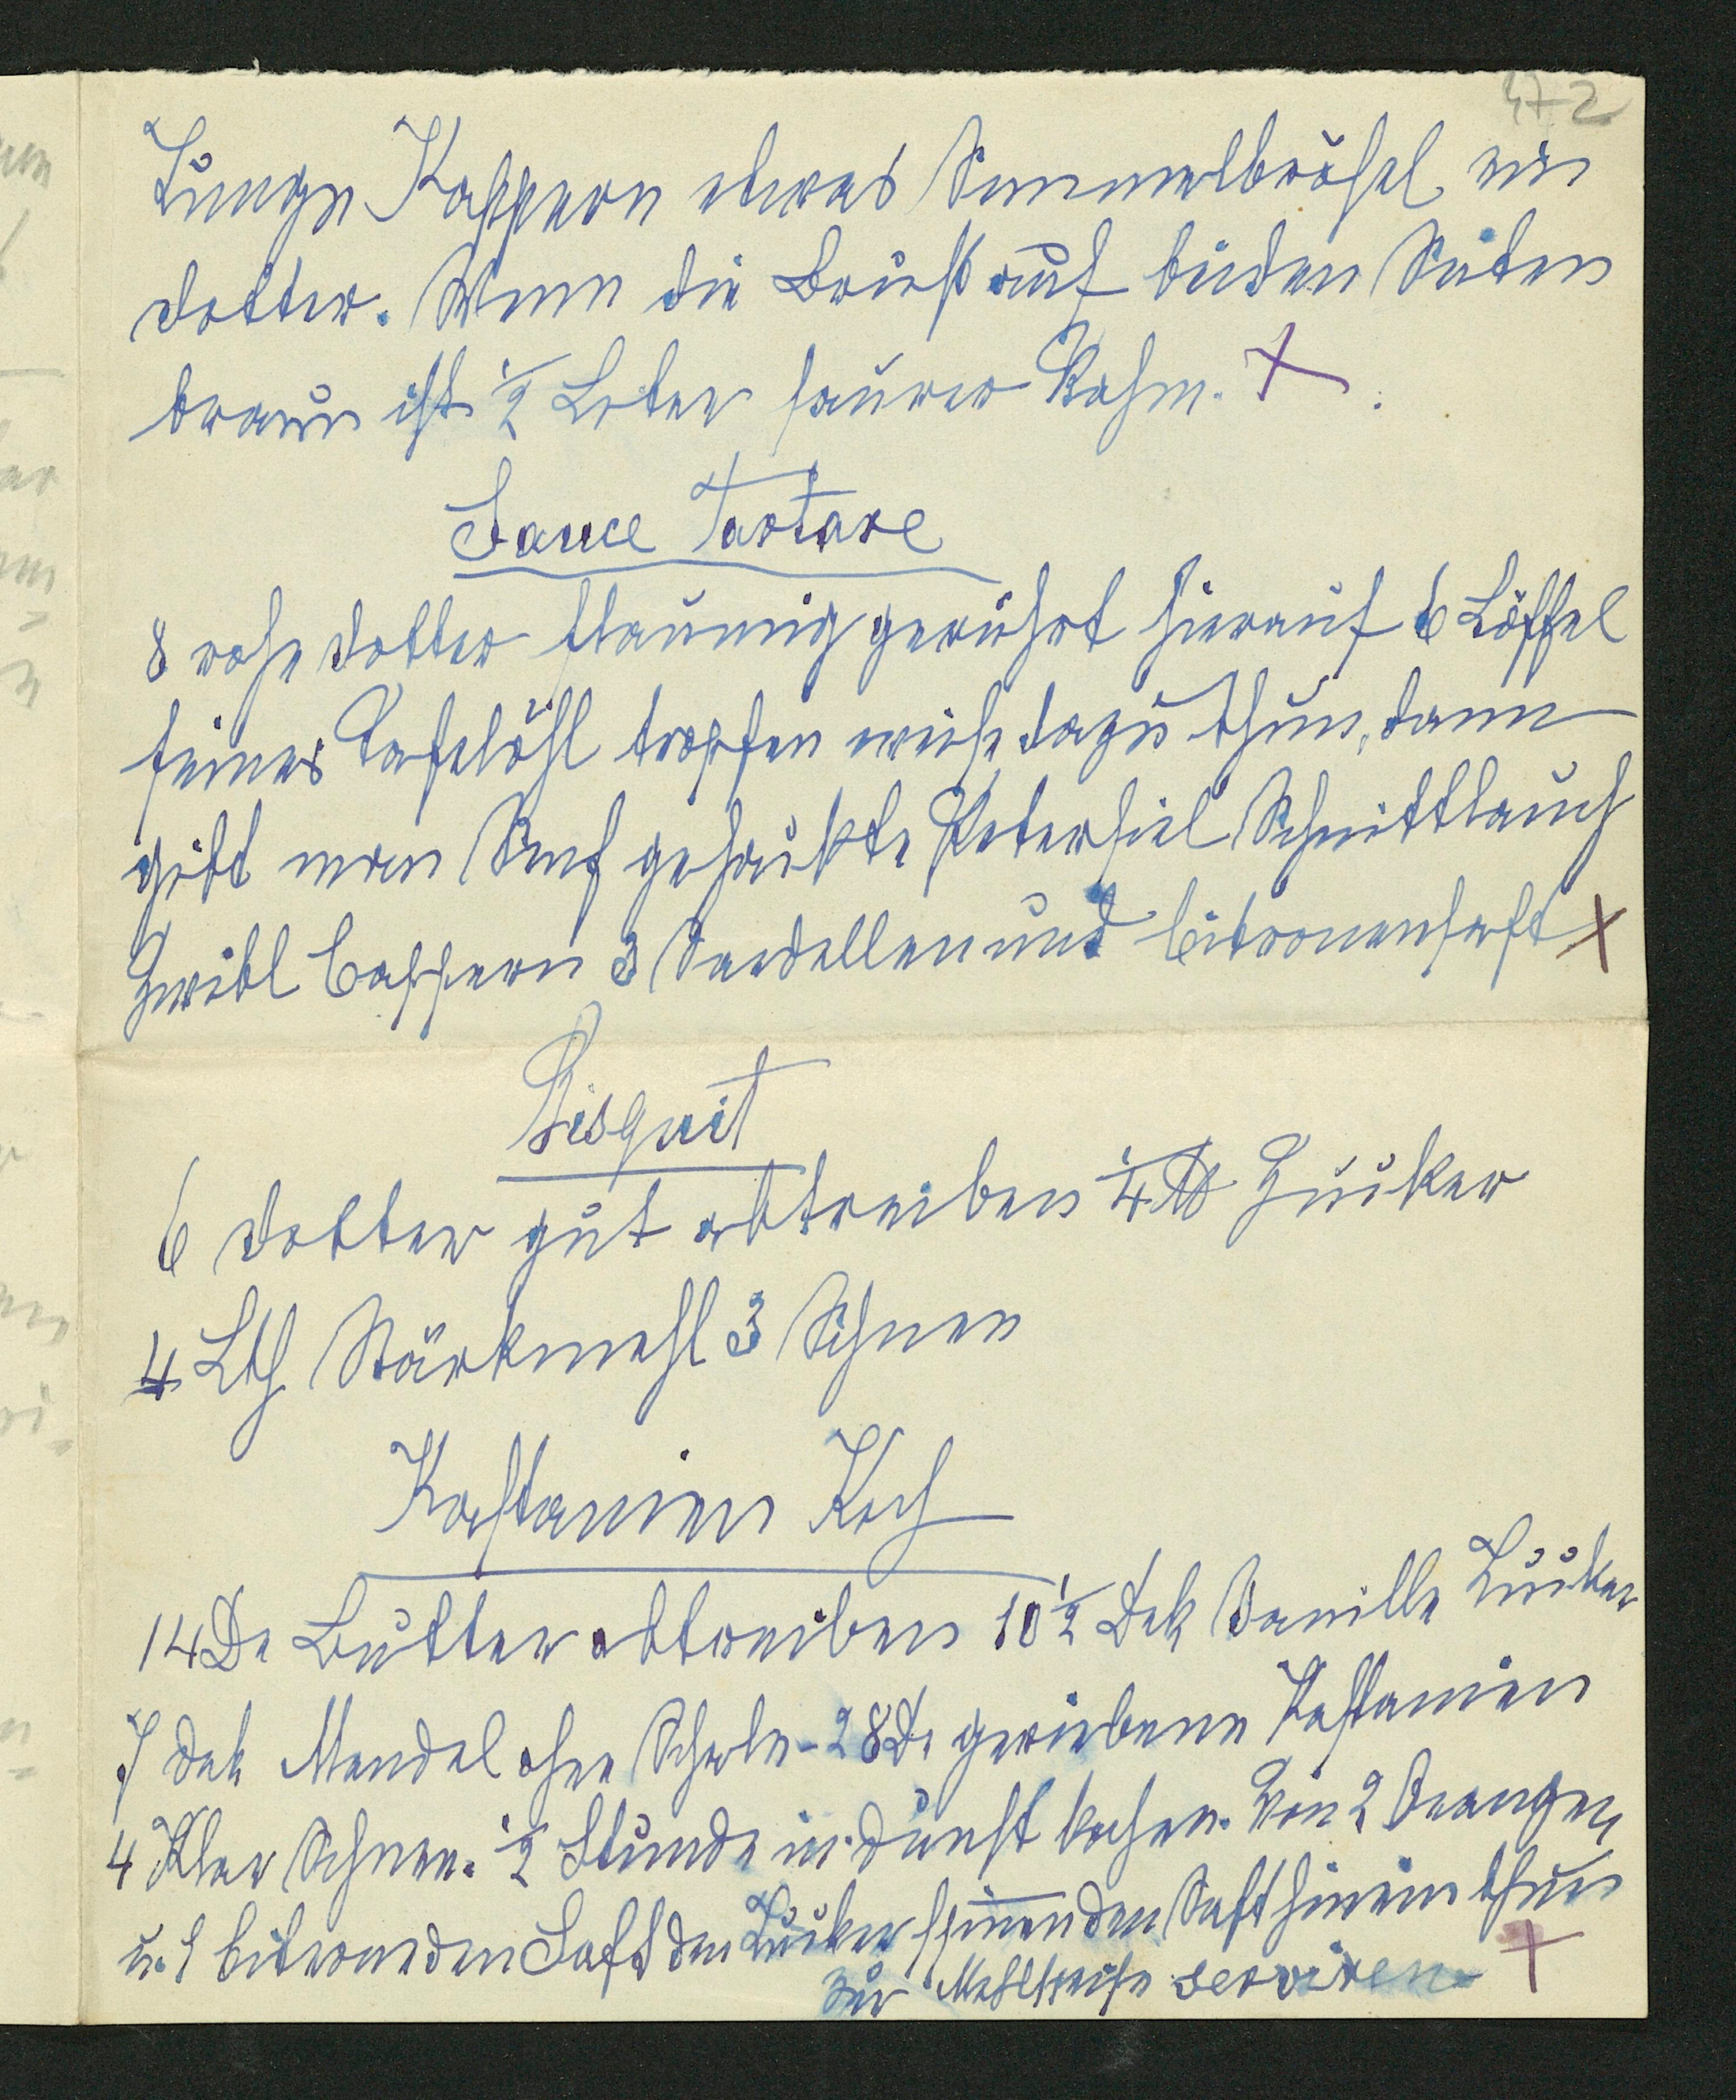 472
Zunge Kappern etwas Semmelbrösel ein
Dotter. Wenn die Brust auf beiden Seiten
braun ist ½ Liter saurer Rahm. X
Sauce Tartare
8 rohe Dotter flaumig gerührt hierauf 6 Löffel
feines Tafelöhl tropfenweise dazu thun, dann
gibt man Senf gehackte Petersiel Schnittlauch
Zwibl Cappern 3 Sardellen und Citronensaft X
Bisquit
6 Dotter gut abtreiben ¼ ℔ Zucker
4 Lth Stärkmehl 3 Schnee
Kastanien Koch
14 De Butter abtreiben 10½ Dek Vanille Zucker
7 Dek Mandel ohne Schale - 28 De geriebene Kastanien
4 Klar Schnee. ½ Stunde in Dunst kochen. Von 2 Orangen
u. 1 Citrone den Saft den Zucker spinnen den Saft hinein thun
zur Mehlspeise serviren X